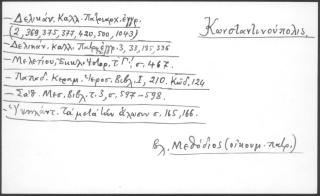 - Δελικάν. Καλλ. Πατριαρχ. έγγρ.
(2, 369, 375, 377, 420, 500, 1043)
Κωνσταντινούπολις
- Δελικάν. Καλλ. Πατρ. έγγρ. 3, 33, 195, 336
- Μελετίου, Εκκλ. Ιστορ. τ. Γ', σ. 467.
- Παπαδ. Κεραμ. Ιεροσ. Βιβλ. Ι, 210. Κώδ. 124
- Σάθ. Μεσ. Βιβλ. τ. 3, σ. 597-598.
- Υψηλάντ. Τα μετά την άλωσιν σ. 165, 166.
βλ. Μεθόδιος (οικουμ. πατρ.)